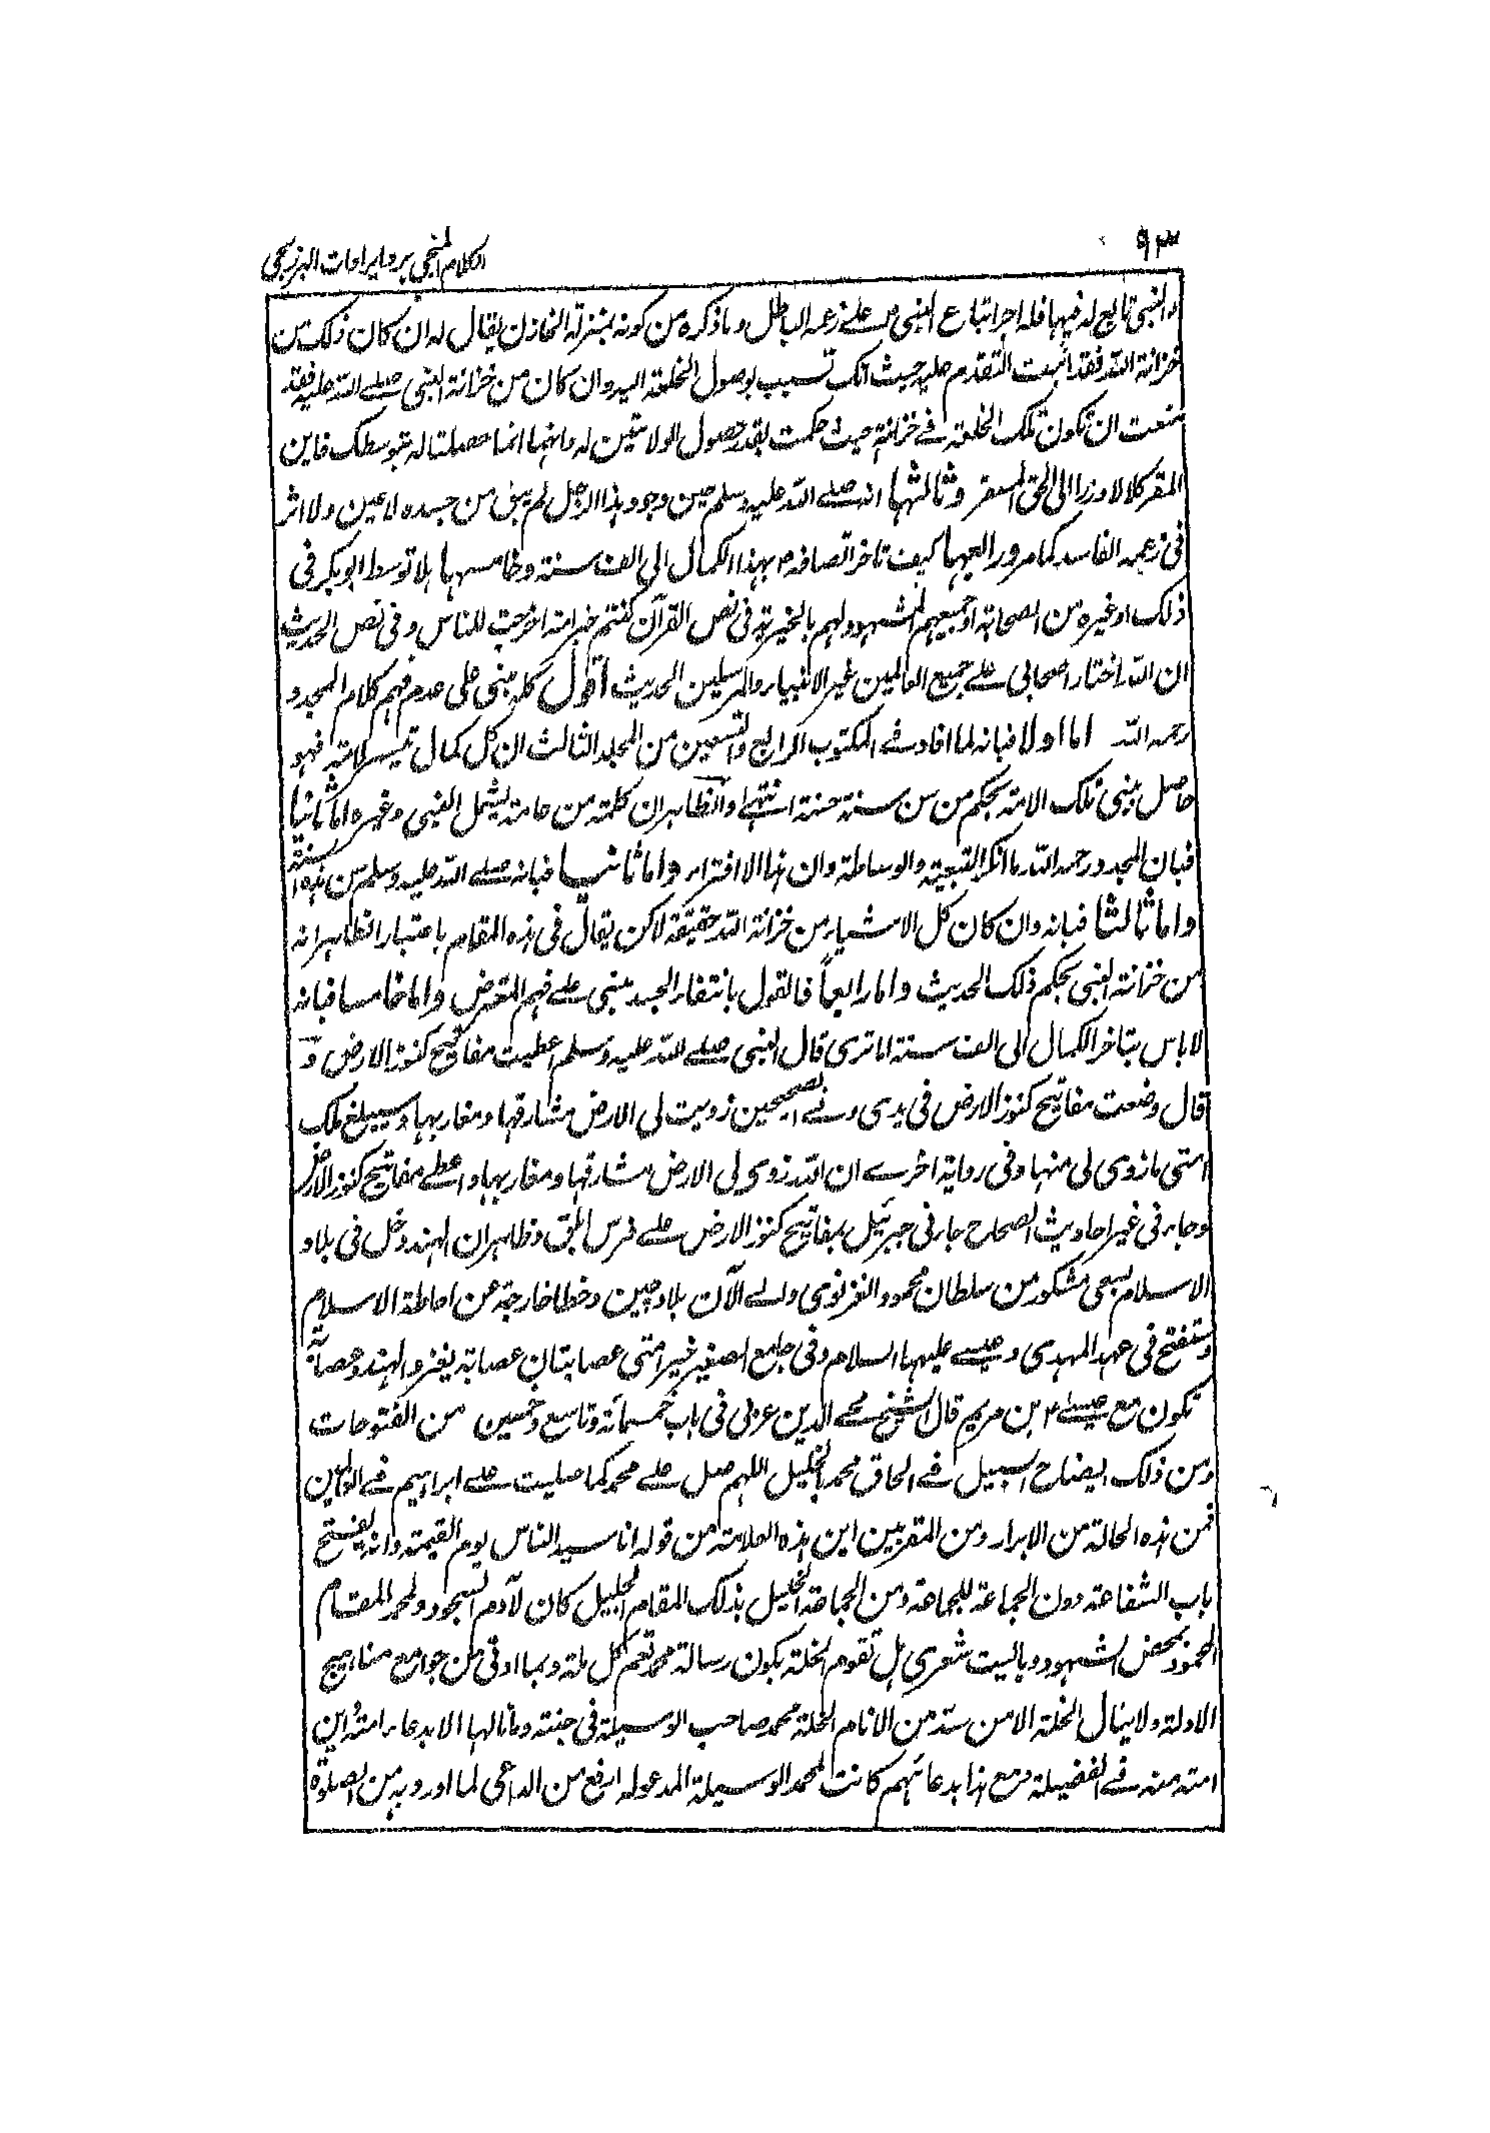 ٩٣
الكلام المنجي برد ايرادات البرزنجي
والنبي تابع له فيها فله اجر اتباع النبي ص على زعمه الباطل وما ذكره من كونه بمنزلة الخازن يقال له ان كان ذلك من
خزانة الله فقد اثبت التقدم عليه حيث انك تسبب لوصول الخلعة اليه وان كان من خزانة النبي صلى الله عليه فقد
منعت ان تكون تلك الخلعة في خزانته حيث حكمت بقدر حصول الولايتين له وانهما انما حصلتا له بتوسطك فاين
المفر كلا لا وزر الى الحق المستقر وثالثها انه صلى الله عليه وسلم حين وجود هذا الرجل لم يبق من جسده لا عين ولا اثر
في زعمه الفاسد كما مر ورابعها كيف تاخر اتصافه ۴ بهذا الكمال الى الف سنة وخامسها هلا توسط ابو بكر في
ذلك او غيره من الصحابة او جميعهم المشهود لهم بالخيرية في نص القرآن كنتم خير امة اخرجت للناس وفي نص الحديث
ان الله اختار اصحابي على جميع العالمين غير الانبياء والمرسلين الحديث اقول كله مبني على عدم فهم كلام المجدد
رحمه الله اما اولا فبانه لما افاد في المكتوب الرابع والتسعين من المجلد الثالث ان كل كمال تيسر لامة فهو
حاصل لنبي تلك الامة بحكم من سن سنة حسنة انتهى والظاهر ان كلمة من عامة يشمل النبي وغيره اما ثانيا
فبان المجدد رحمه الله ما انكر التبعية والوساطة وان هذا الا افتراء واما ثانيا فبانه صلى الله عليه وسلم سن هذه السنة
واما ثالثا فبانه وان كان كل الاشياء من خزانة الله حقيقة لاكن يقال في هذه المقام باعتبار الظاهر انه
من خزانة النبي بحكم ذلك الحديث واما رابعاً فالقول بانتفاء الجسد مبني على فهم المتعرض واما خامسا فبانه
لا باس بتاخر الكمال الى الف سنة اما ترى قال النبي صلى الله عليه وسلم اعطيت مفاتيح كنوز الارض و
قال وضعت مفاتيح كنوز الارض في يدي وفي الصحيحين زويت لي الارض مشارقها ومغاربها وسيبلغ ملك
امتي ما زوي لي منها وفي رواية اخرى ان الله زوى لي الارض مشارقها ومغاربها واعطى مفاتيح كنوز الارض
وجاء في غير احاديث الصحاح جاءني جبرئيل بمفاتيح كنوز الارض على فرس ابلق وظاهر ان الهند دخل في بلاد
الاسلام بسعي مشكور من سلطان محمود الغزنوي والى الآن بلاد چين وخطا خارجة عن احاطة الاسلام
وستفتح في عهد المهدي وعيسى عليهما السلام وفي جامع الصغير خير امتي عصابتان عصابة يغزو الهند وعصابة
تكون مع عيسى ۴ بن مريم قال الشيخ محي الدين عربي في باب خمسمائة وتاسع وخمسين من الفتوحات
ومن ذلك ايضاح السبيل في الحاق محمد بالخليل اللهم صل على محمد كما صليت على ابراهيم في العالمين
فمن هذه الحالة من الابرار ومن المقربين اين هذه العلامة من قوله انا سيد الناس يوم القيمة وانه يفتتح
باب الشفاعة دون الجماعة للجماعة ومن الجماعة الخليل بذلك المقام الجليل كان لآدم السجود ولمحمد المقام
المحمود بمحض الشهود وياليت شعري هل تقوم الخلة بكون رسالة محمد تعم كل ملة وبما اوتي من جوامع مناهيج
الادلة ولا ينال الخلة الا من سد من الانام الخلة محمد صاحب الوسيلة في جنته وما نالها الا بدعاء امته اين
امته منه في الفضيلة ومع هذا بدعائهم كانت لمحمد الوسيلة المدعو له ارفع من الداعي لما اورد به من الصلوة